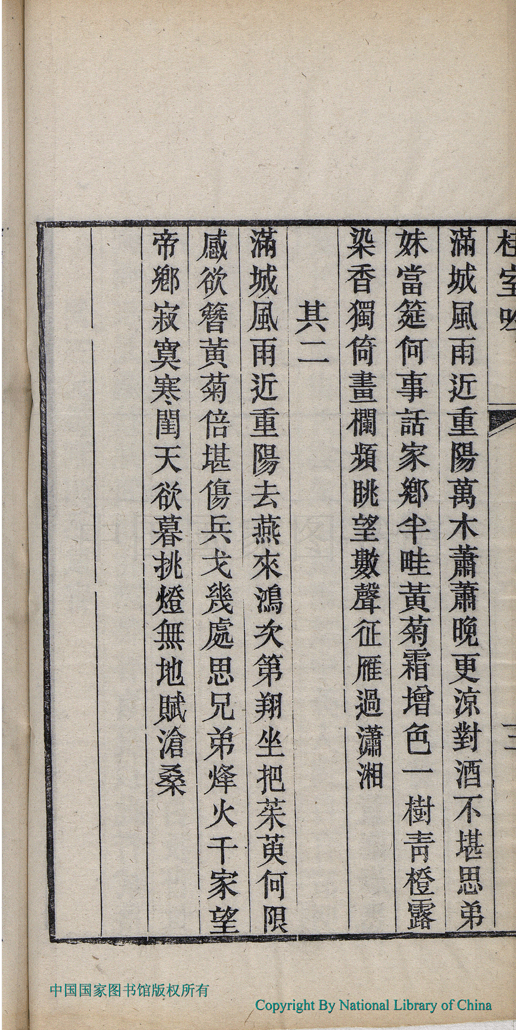 桂室吟
三
滿城風雨近重陽萬木蕭蕭晩更涼對酒不堪思弟
妹當筵何事話家鄉半畦黃菊霜增色一樹青橙露
染香獨倚畫欄頻眺望數聲征雁過瀟湘
其二
滿城風雨近重陽去燕來鴻次第翔坐把茱萸何限
感欲簪黃菊倍堪傷兵戈幾處思兄弟烽火千家望
帝鄉寂寞寒閨天欲暮挑燈無地賦滄桑
中国国家图书馆版权所有
Copyright By National Library of China